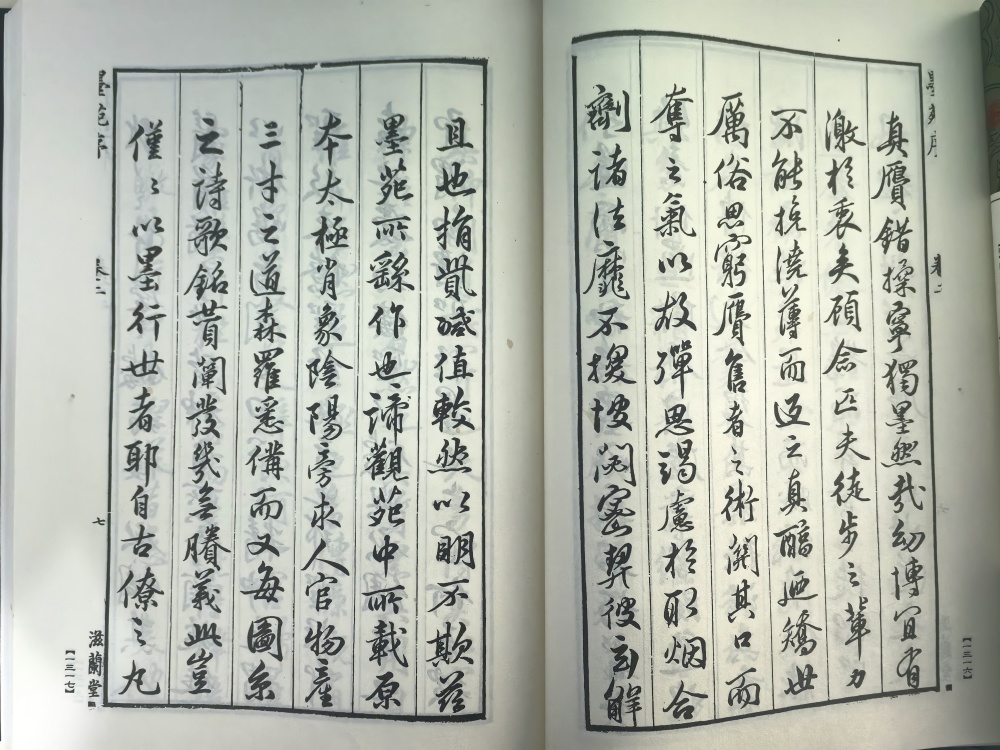 墨苑序
卷二
【一三一六】
真贋錯操寧獨墨然哉幼博宜有
激於衷矣顧念匹夫徒步之輩力
不能挽澆薄而返之真醇廼矯世
厲俗思窮贋售者之術關其口而
奪之氣以故殫思竭慮於取烟合
劑諸法靡不閟密契彼玄解
且也捐貲減值較然以明不欺茲
墨苑所繇作也諦觀苑中所載原
本太極肖象陰陽旁求人官物產
三才之道森羅悉備而又每圖系
之詩歌銘贊闡發幾無賸義此豈
僅〻以墨行世者耶自古僚之丸
墨苑序
卷二
七
滋蘭堂
【一三一七】